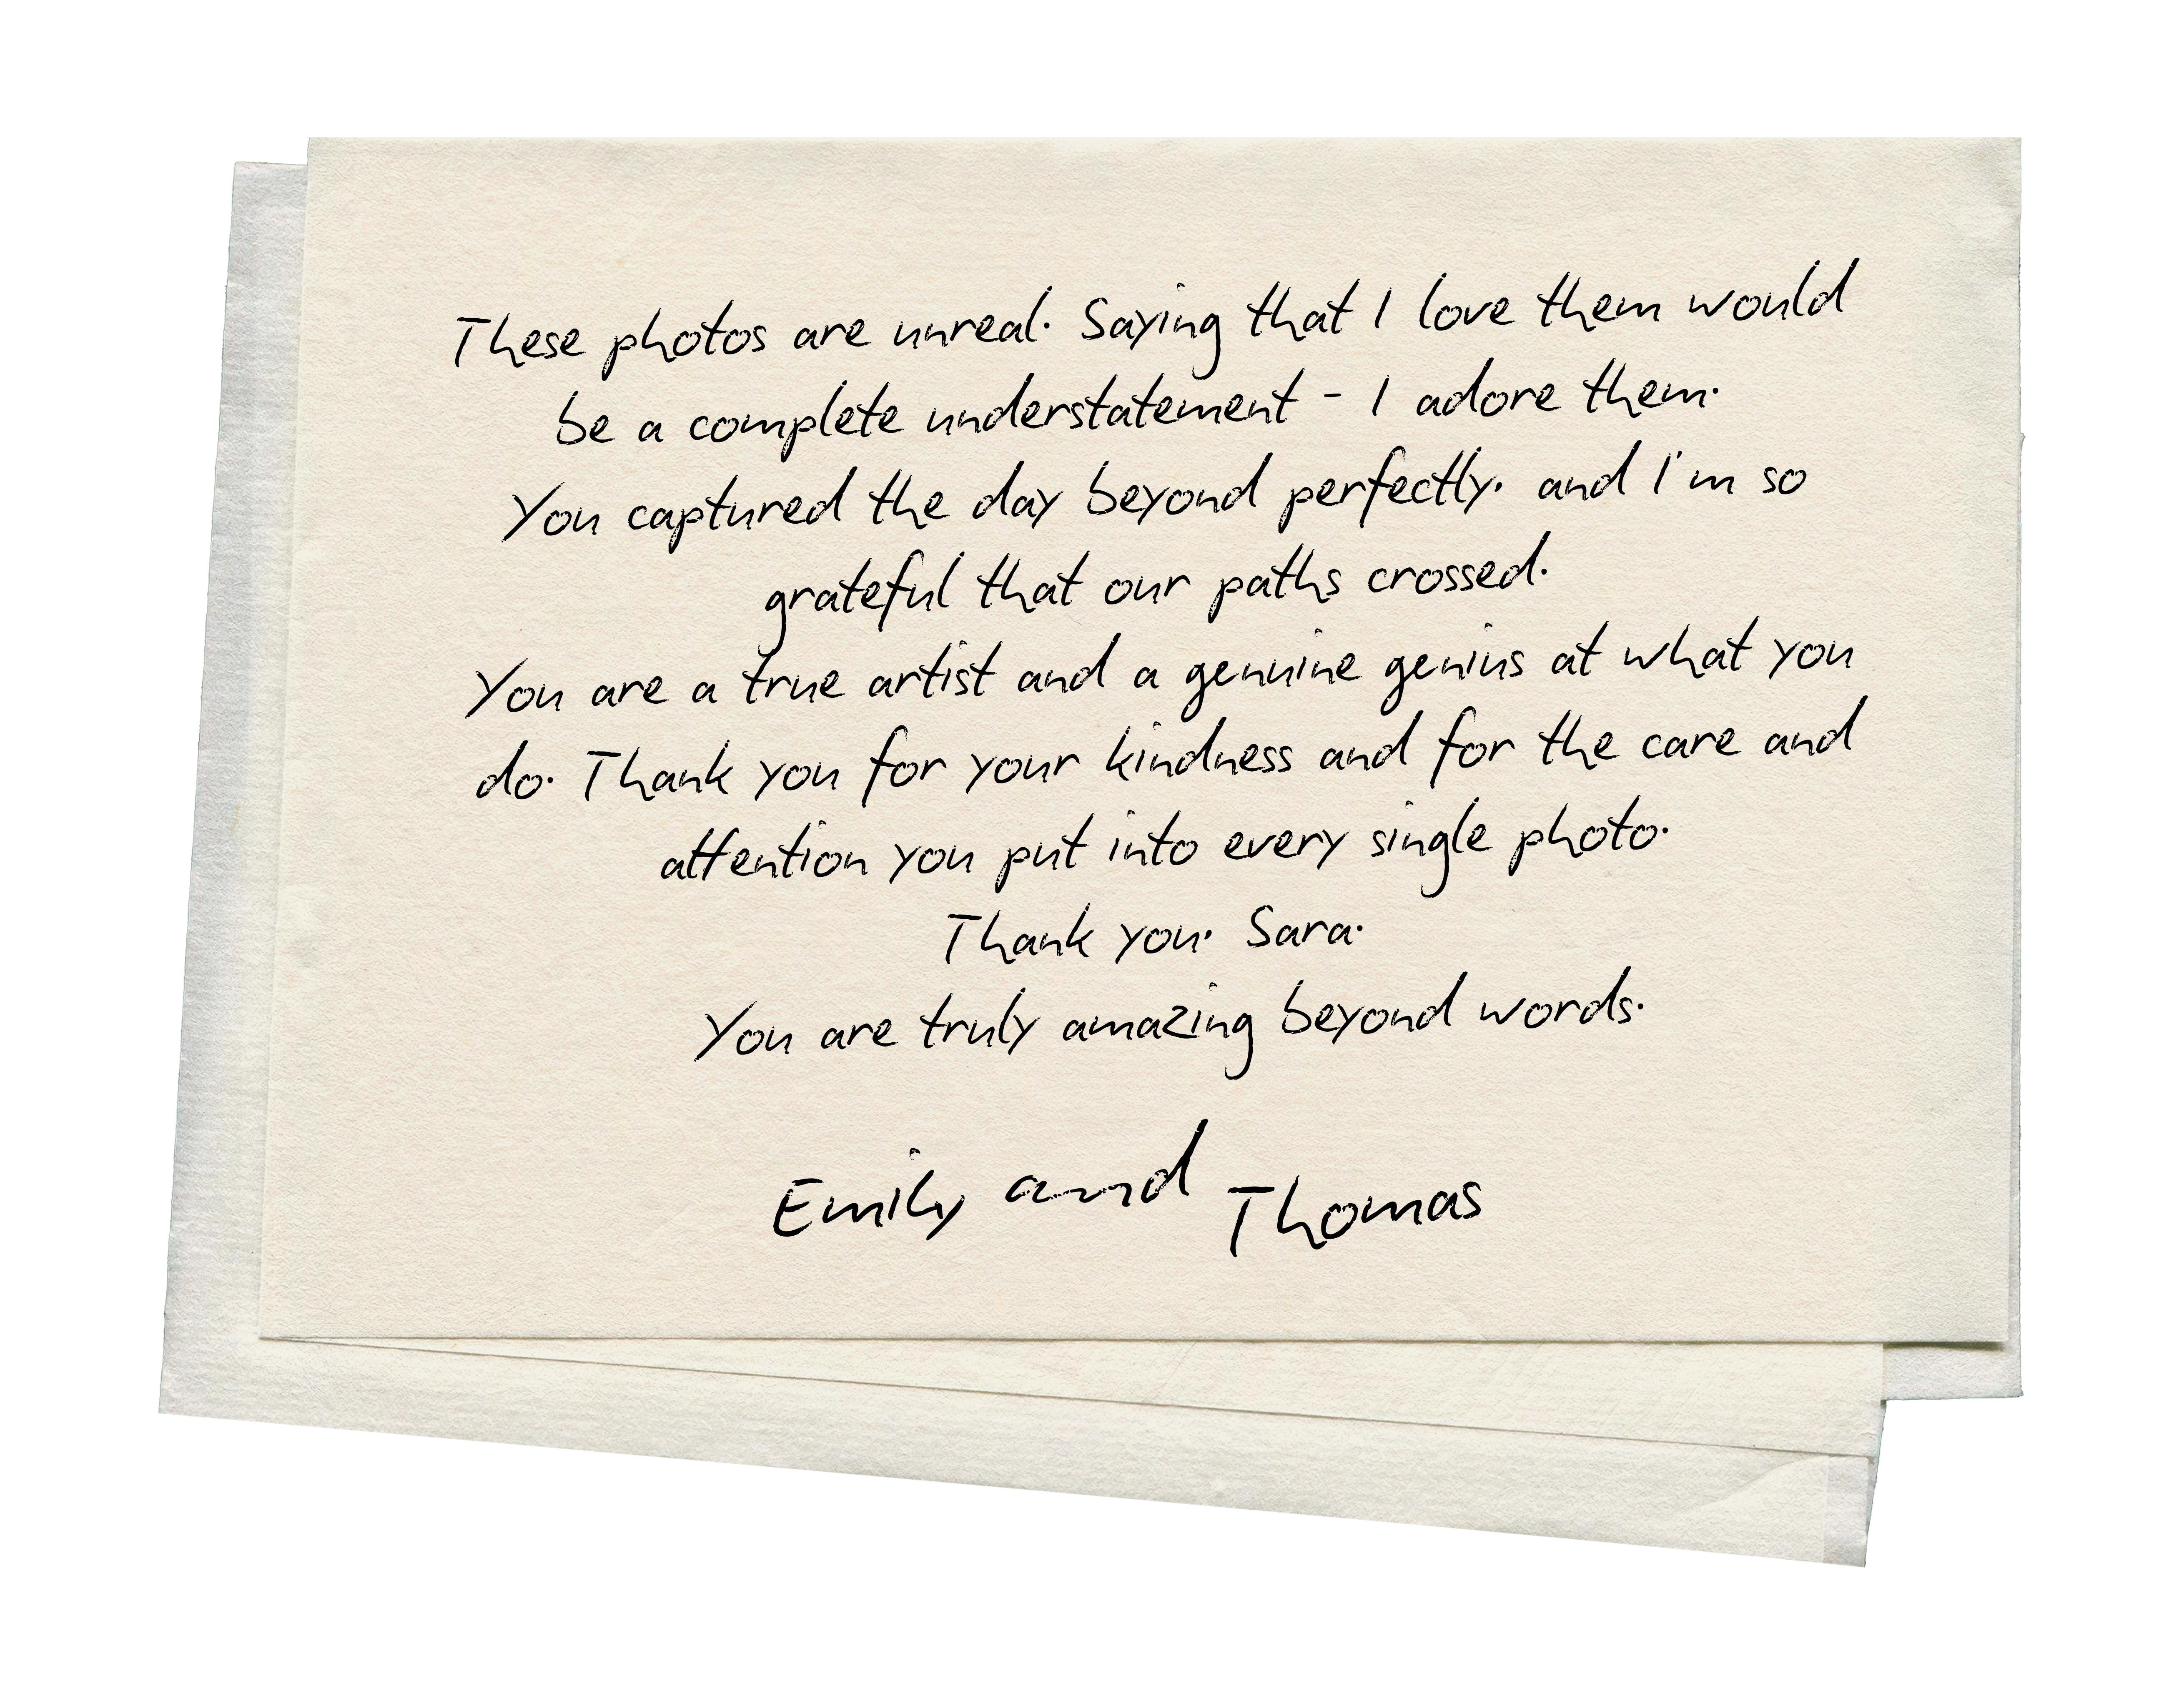 These photos are unreal. Saying that I love them would
be a complete understatement - I adore them.
You captured the day beyond perfectly, and I'm so
grateful that our paths crossed.
You are a true artist and a genuine genius at what you
do. Thank you for your kindness and for the care and
attention you put into every single photo.
Thank you, Sara.
You are truly amazing beyond words.
Emily and Thomas